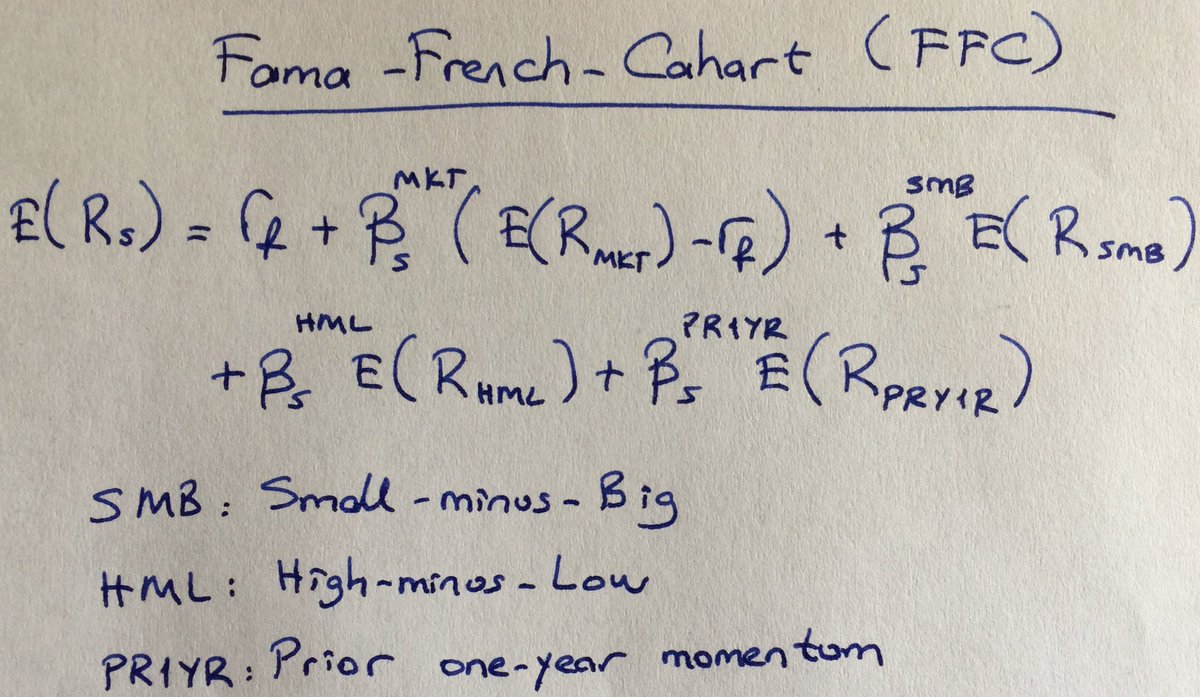 Fama-French-Cahart (FFC)
E(R_s) = r_f + β_s^MKT (E(R_MKT) - r_f) + β_s^SMB E(R_SMB)
+ β_s^HML E(R_HML) + β_s^PR1YR E(R_PRY1R)
SMB: Small-minus-Big
HML: High-minus-Low
PR1YR: Prior one-year momentum